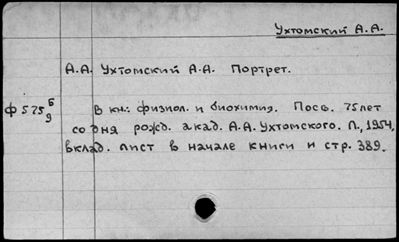 Ухтомский А.А.
А.А. Ухтомский А.А. Портрет.
Ф 575 Б/9 В кн.: физиол. и биохимия. Посв. 75лет
со дня рожд. акад. А.А. Ухтомского. Л., 1954,
вклад. лист в начале книги и стр. 389.